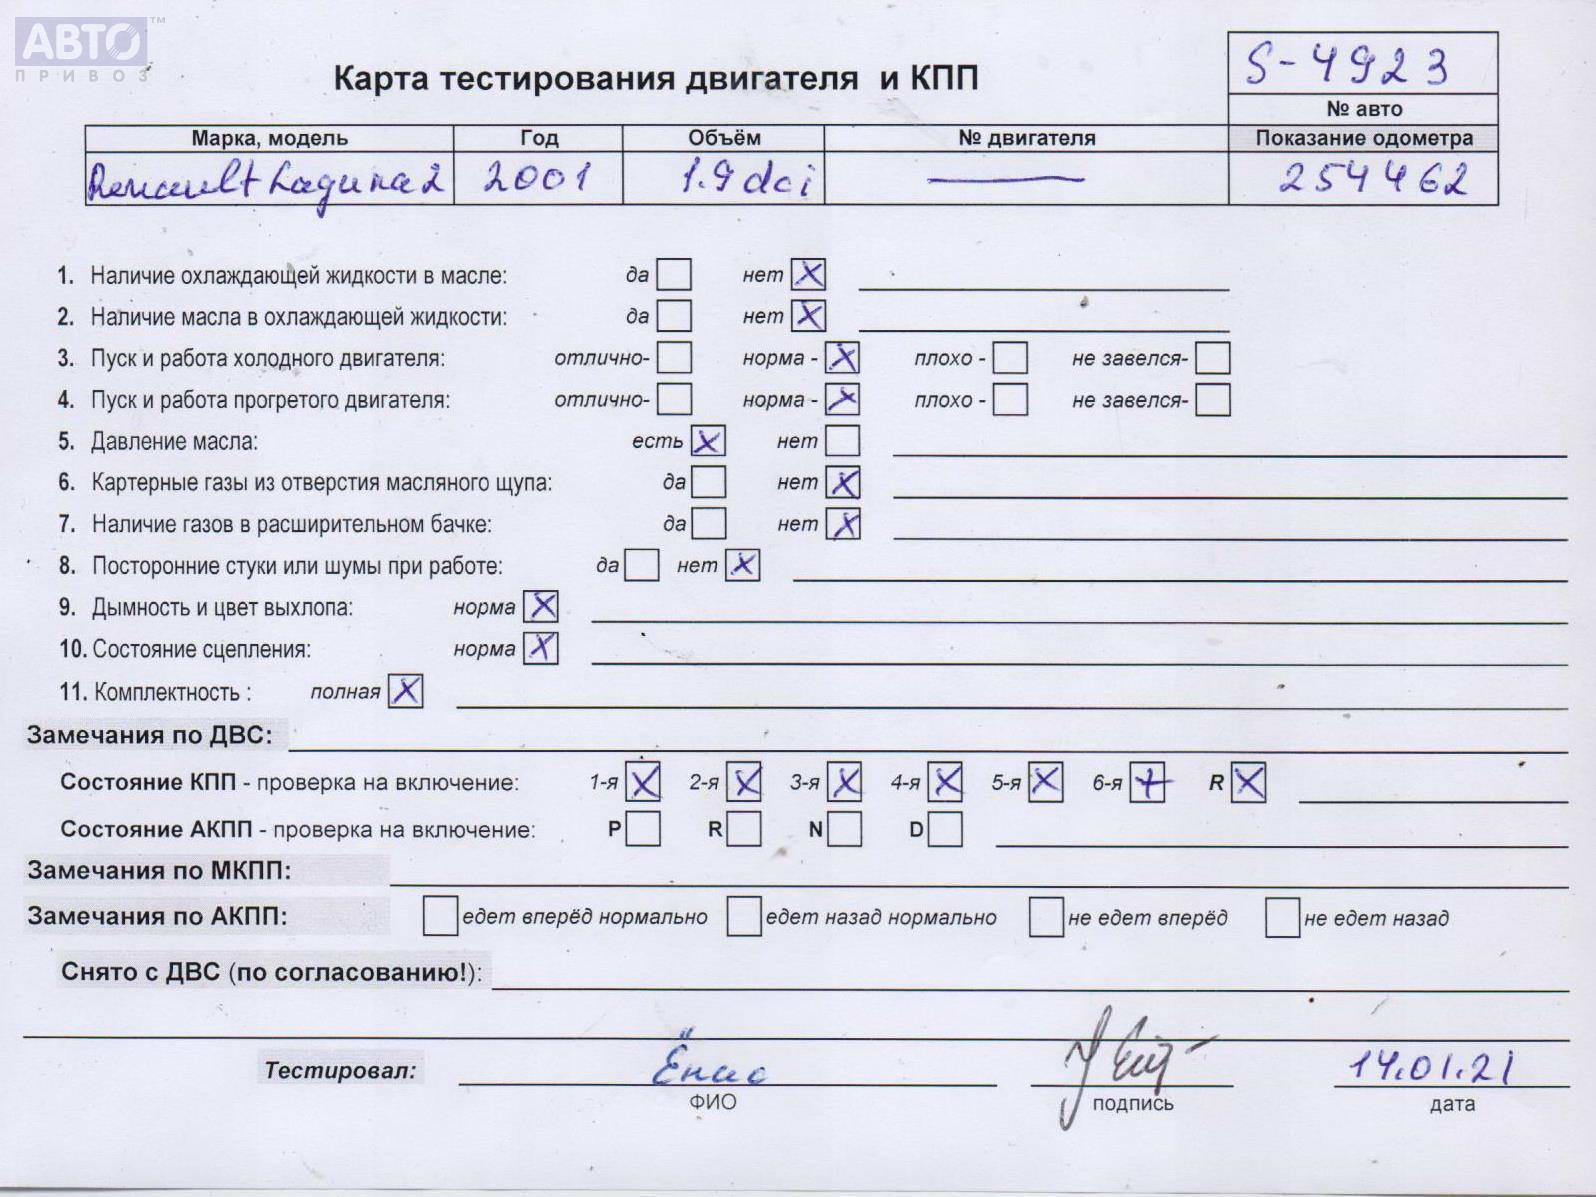 АВТО ™
ПРИВОЗ
S-4923
Карта тестирования двигателя и КПП
№ авто
Марка, модель Год Объём № двигателя Показание одометра
Renault Laguna 2 2001 1.9 dci — 254462
1. Наличие охлаждающей жидкости в масле: да нет X
2. Наличие масла в охлаждающей жидкости: да нет X
3. Пуск и работа холодного двигателя: отлично- норма - X плохо - не завелся-
4. Пуск и работа прогретого двигателя: отлично- норма - X плохо - не завелся-
5. Давление масла: есть X нет
6. Картерные газы из отверстия масляного щупа: да нет X
7. Наличие газов в расширительном бачке: да нет X
8. Посторонние стуки или шумы при работе: да нет X
9. Дымность и цвет выхлопа: норма X
10. Состояние сцепления: норма X
11. Комплектность : полная X
Замечания по ДВС:
Состояние КПП - проверка на включение: 1-я X 2-я X 3-я X 4-я X 5-я X 6-я + R X
Состояние АКПП - проверка на включение: P R N D
Замечания по МКПП:
Замечания по АКПП: едет вперёд нормально едет назад нормально не едет вперёд не едет назад
Снято с ДВС (по согласованию!):
Тестировал: 14.01.21
ФИО подпись дата